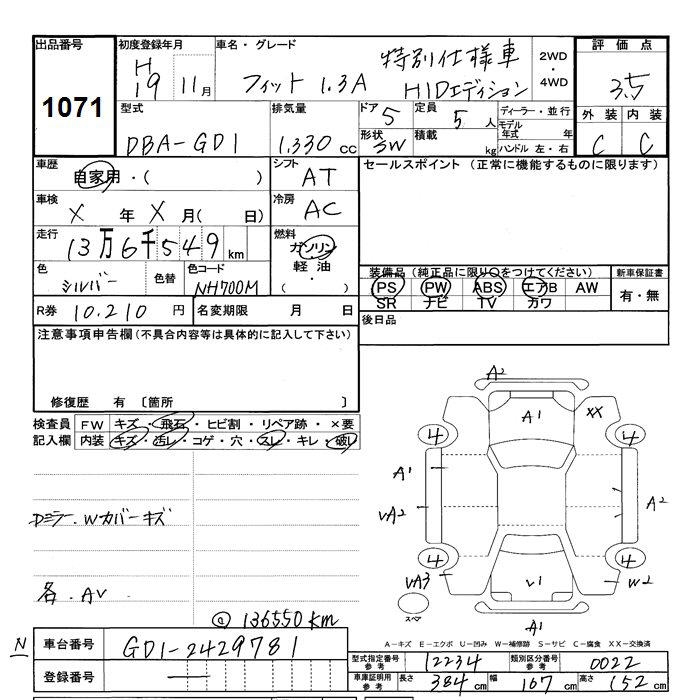 出品番号 初度登録年月 車名・グレード 特別仕様車 2WD・4WD 評価点
1071 H19 11月 フィット 1.3A HIDエディション 3.5
型式 排気量 ドア 5 定員 5人 ディーラー・並行 外装 内装
DBA-GD1 1,330cc 形状 5W 積載 kg モデル年式 年 ハンドル 左・右 C C
車歴 自家用・( ) シフト AT セールスポイント (正常に機能するものに限ります)
車検 X年X月( 日) 冷房 AC
走行 13万6千549km 燃料 ガソリン・軽油・( )
色 シルバー 色替 色コード NH700M
装備品 (純正品に限り○をつけてください) 新車保証書
PS PW ABS エアB AW 有・無
SR ナビ TV カワ
R券 10,210円 名変期限 月 日 後日品
注意事項申告欄 (不具合内容等は具体的に記入して下さい)
修復歴 有 〔箇所 〕
検査員記入欄 FW キズ・飛石・ヒビ割・リペア跡・×要
内装 キズ・汚レ・コゲ・穴・スレ・キレ・破レ
Dミラー・Wカバーキズ
各・AV
@ 136550km
A2
A1 XX
4 4
A1
VA2 A2
4 4
VA3 V1 W2
スペア
A1
A-キズ E-エクボ U-凹み W-補修跡 S-サビ C-腐食 XX-交換済
N 車台番号 GD1-2429781
登録番号
型式指定番号 参考 12234 類別区分番号 参考 0022
車庫証明用 参考 長さ 384cm 幅 167cm 高さ 152cm